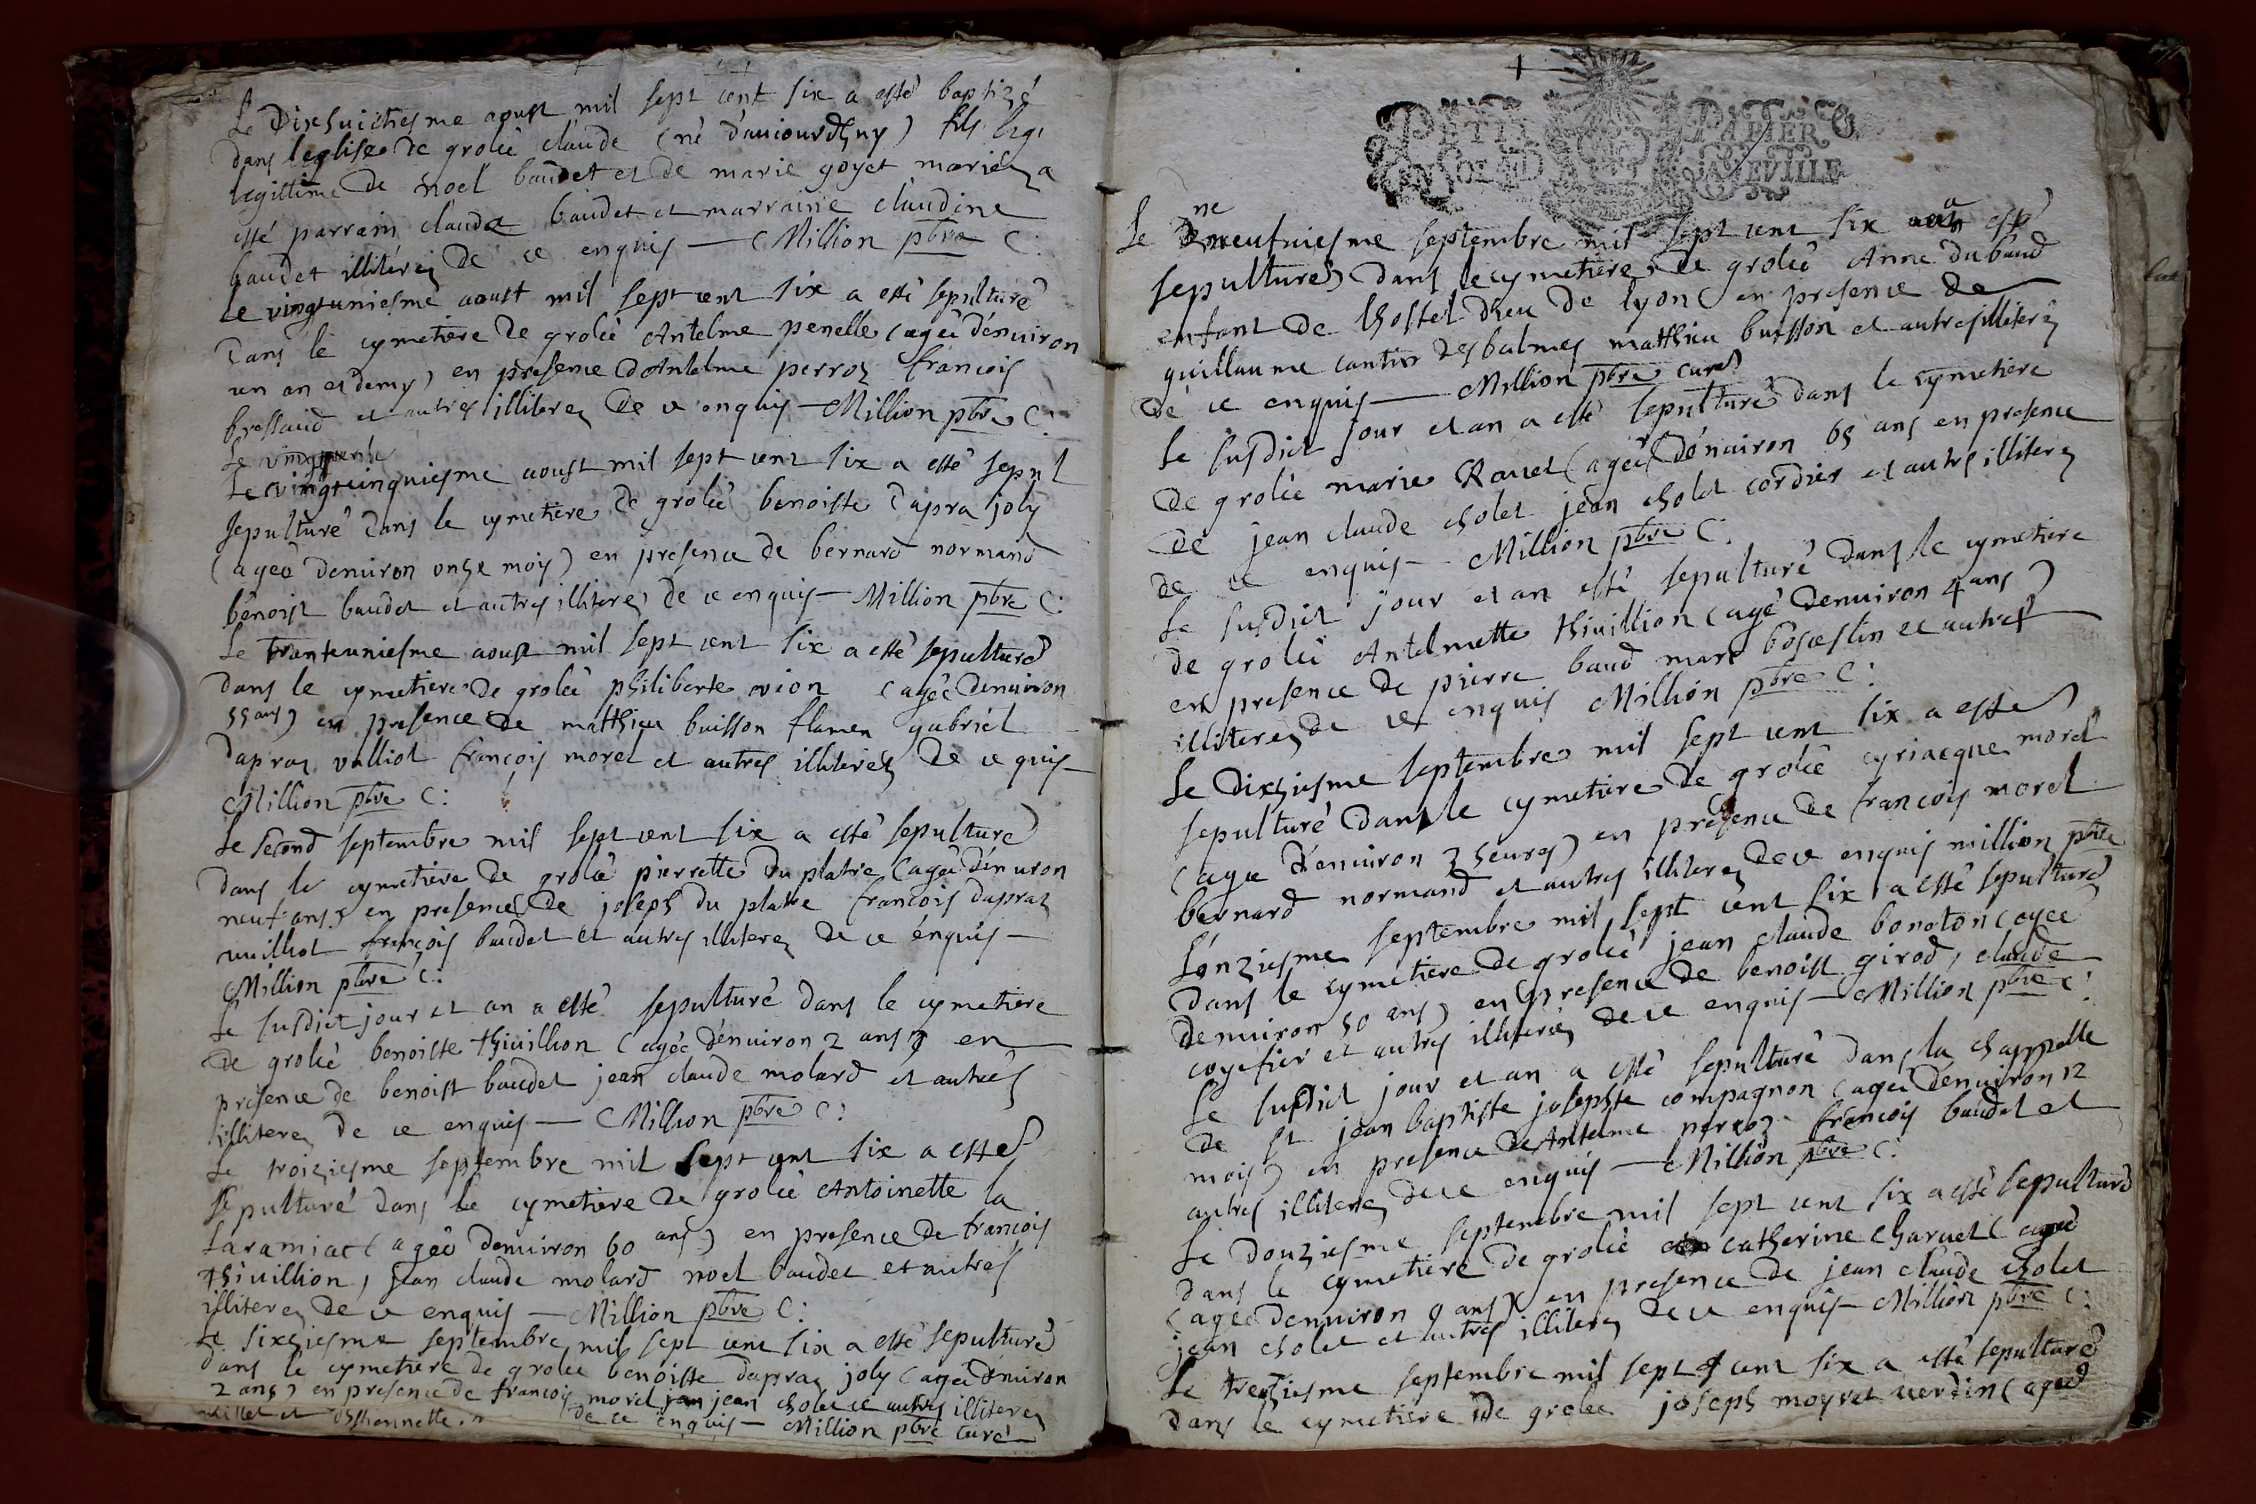 Le Dixhuictiesme aoust mil sept cent six a esté baptizé
dans leglise de groleé claude (né d'auiourdhuy) fils legi
legittime de noel baudet et de marie goyet mariéz a
esté parrain claude baudet et marraine claudine
baudet illiteréz de ce enquis — Million pbre C:
Le vingtuniesme aoust mil sept cent six a esté sepulturé
dans le cymetiere de groleé Antelme penelle (ageé d'enuiron
un an et demy) en presence d'Antelme perroz francois
bressaud et autres illiterez de ce enquis — Million pbre C:
Le vingtcinquiesme aoust mil sept cent six a esté sepul
sepulturé dans le cymetiere de groleé benoiste dapra joly
(ageé denuiron onze mois) en presence de bernard normand
benoist baudet et autres illiterez de ce enquis — Million pbre C:
Le trenteuniesme aoust mil sept cent six a esté sepulturé
dans le cymetiere de groleé philiberte vion (agée denuiron
55 ans) en presence de matthieu buisson flamen gabriel
dapraz vulliot françois morel et autres illiteréz de ce quis —
Million pbre C:
Le second septembre mil sept cent six a esté sepulturé
dans le cymetiere de groleé pierrette du platre (ageé d'enuiron
neuf ans) en presence de joseph du platre francois dapraz
vuilliot françois baudet et autres illiterez de ce énquis —
Million pbre C:
Le susdict jour et an a esté sepulturé dans le cymetiere
de groleé benoiste thiuillion (agée d'énuiron 2 ans) en
présence de benoist baudet jean claude molard et autres
illiterez de ce enquis — Million pbre C:
Le troiziesme septembre mil sept cent six a esté
sepulturé dans le cymetiere de groleé Antoinette la
laramiat (ageé denuiron 60 ans) en presence de francois
thiuillion, jean claude molard noel baudet et autres
illiterez de ce enquis — Million pbre C:
Le sixziesme septembre mil sept cent six a esté sepulturé
dans le cymetiere de groleé benoiste dapraz joly (ageé d'énuiron
2 ans) en presence de francois morel jean cholet et autres illiterez
de ce enquis — Million pbre curé
PETIT PAPIER
Le neufuiesme septembre mil sept cent six a esté
sepulturé dans le cymetiere de groleé Anne dubaud
enfant de lhostel dieu de lyon en presence de
guillaume cantin des balmes matthieu buisson et autres illiteréz
dé ce enquis — Million pbre curé
Le susdict jour et an a esté sepulturé dans le cymetiere
de groleé marie Rauet (ageé d'énuiron 65 ans en presence
de jean claude cholet jean cholet cordier et autres illiterez
de ce enquis — Million pbre C:
Le susdict jour et an esté sepulturé dans le cymetiere
de groleé Antelmette thiuillion (agé denuiron 4 ans)
en presence de pierre baud marc et autres
illiterez de ce enquis Million pbre C:
Le dixziesme septembre mil sept cent six a esté
sepulturé dans le cymetiere de groleé cyriacque morel
(agé d'enuiron 3 heures) en présence de francois morel
bernard normand et autres illiterez de ce enquis million pbre
L'onziesme septembre mil sept cent six a esté sepulturé
dans le cymetiere de groleé jean claude bonoton (ageé
denuiron 50 ans) en presence de benoist girod, claude
coyefier et autres illiteréz de ce enquis — Million pbre C:
Le susdict jour et an a esté sepulturé dans la chappelle
de St jean baptiste josephte compagnon (ageé denuiron 12
mois) en presence de Antelme perroz francois baudet et
autres illiterez de ce enquis — Million pbre C:
Le douziesme septembre mil sept cent six a esté sepulturé
dans le cymetiere de groleé catherine charuet (ageé
(ageé denuiron 9 ans) en presence de jean claude cholet
jean cholet et autres illiterez de ce enquis — Million pbre C:
Le treiziesme septembre mil sept cent six a esté sepulturé
dans le cymetiere de groleé joseph moyret verdin (ageé